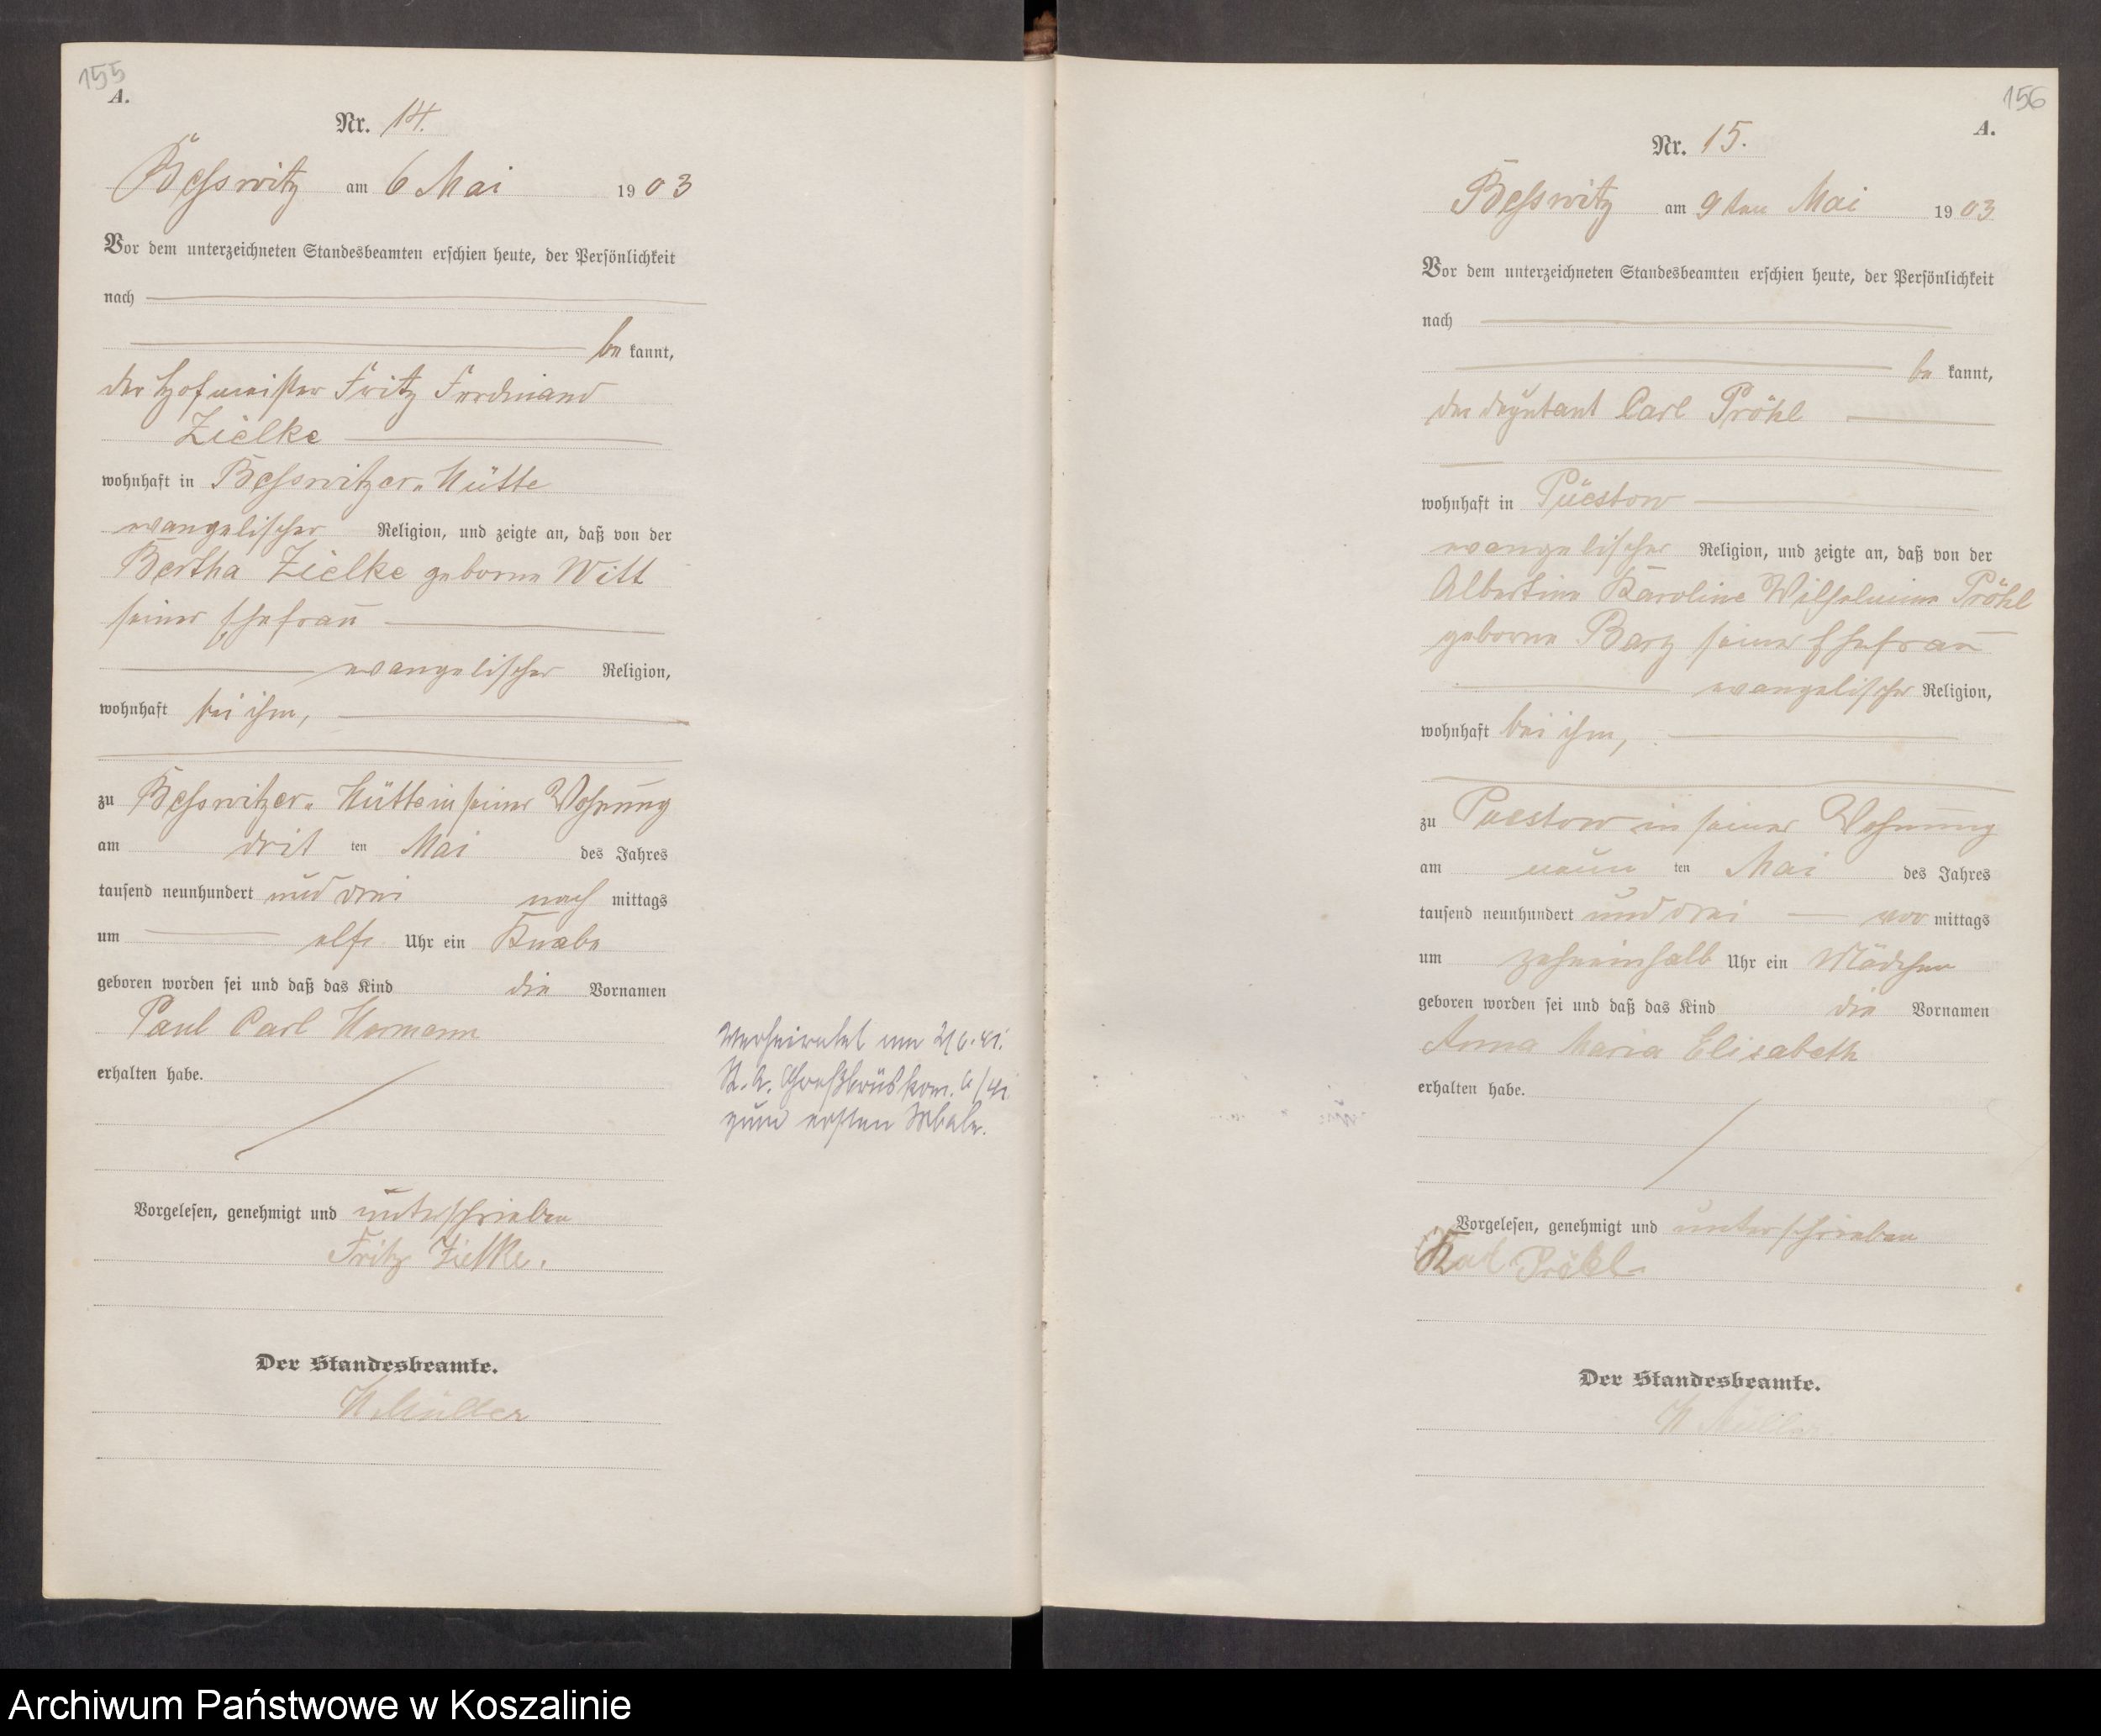 155
A.
Nr. 14.
Besswitz am 6 Mai 1903
Vor dem unterzeichneten Standesbeamten erschien heute, der Persönlichkeit
nach
be kannt,
der Hofmeister Fritz Ferdinand
Zielke
wohnhaft in Besswitzer-Hütte
evangelischer Religion, und zeigte an, daß von der
Bertha Zielke geborne Witt
seiner Ehefrau
evangelischer Religion,
wohnhaft bei ihm,
zu Besswitzer-Hütte in seiner Wohnung
am dritten Mai des Jahres
tausend neunhundert und drei nach mittags
um elf Uhr ein Knabe
geboren worden sei und daß das Kind die Vornamen
Paul Carl Hermann
erhalten habe.
Vorgelesen, genehmigt und unterschrieben
Fritz Zielke.
Der Standesbeamte.
Müller
Verheiratet am
zum ersten Male.
156
A.
Nr. 15.
Besswitz am 9ten Mai 1903
Vor dem unterzeichneten Standesbeamten erschien heute, der Persönlichkeit
nach
be kannt,
der Deputant Carl Pröhl
wohnhaft in Püestow
evangelischer Religion, und zeigte an, daß von der
Albertine Karoline Wilhelmine Pröhl
geborne Barz seiner Ehefrau
evangelischer Religion,
wohnhaft bei ihm,
zu Puestow in seiner Wohnung
am neunten Mai des Jahres
tausend neunhundert und drei vor mittags
um zehneinhalb Uhr ein Mädchen
geboren worden sei und daß das Kind die Vornamen
Anna Maria Elisabeth
erhalten habe.
Vorgelesen, genehmigt und unterschrieben
Karl Pröhl
Der Standesbeamte.
Müller
Archiwum Państwowe w Koszalinie